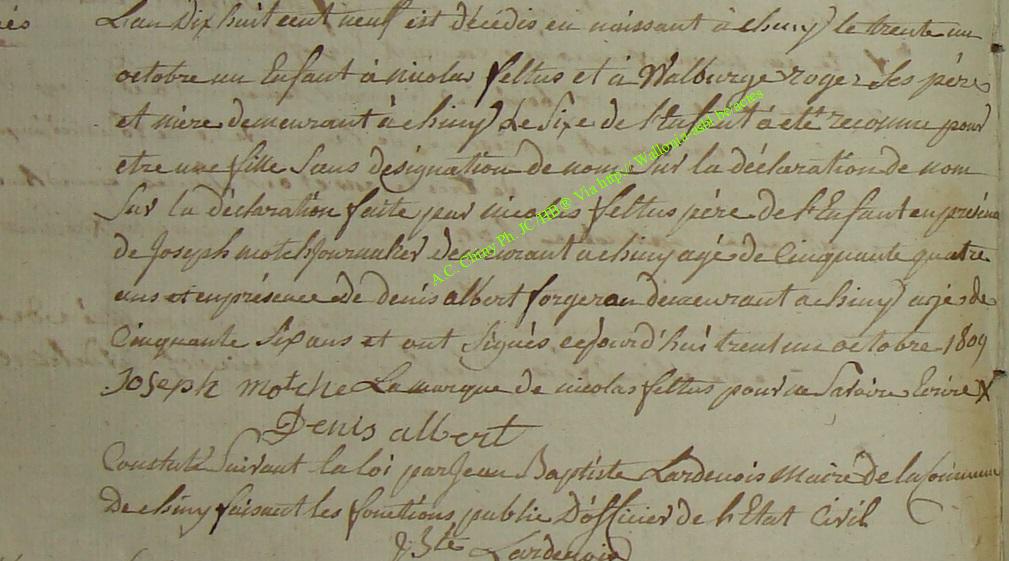 L'an Dix huit cent neuf est décédés en naissant à chiny le trente un
octobre un Enfant à nicolas feltus et à Walburge roger ses père
et mère demeurant à chiny Le Sixe de l'Enfant à eté reconnu pour
etre une fille Sans désignation de nom Sur la déclaration de nom
Sur la déclaration faite par nicolas feltus père de l'Enfant en présence
de Joseph motch Journalier demeurant a chiny agés de Cinquante quatre
ans et en présence de denis albert forgeron demeurant a chiny agés de
Cinquante Six ans et ont Signés cejourd'hui trent un octobre 1809
Joseph motche La marque de nicolas feltus pour ne Savoire Ecrire X
Denis albert
Constaté Suivant la loi par Jean Baptiste Lardenois Maire de la Commune
De chiny faisant les fonctions public D'officier de l'Etat Civil
J Bte Lardenois
A.C. Chiny Ph. JC /HB® Via http:// Wallonia-asbl.be/actes